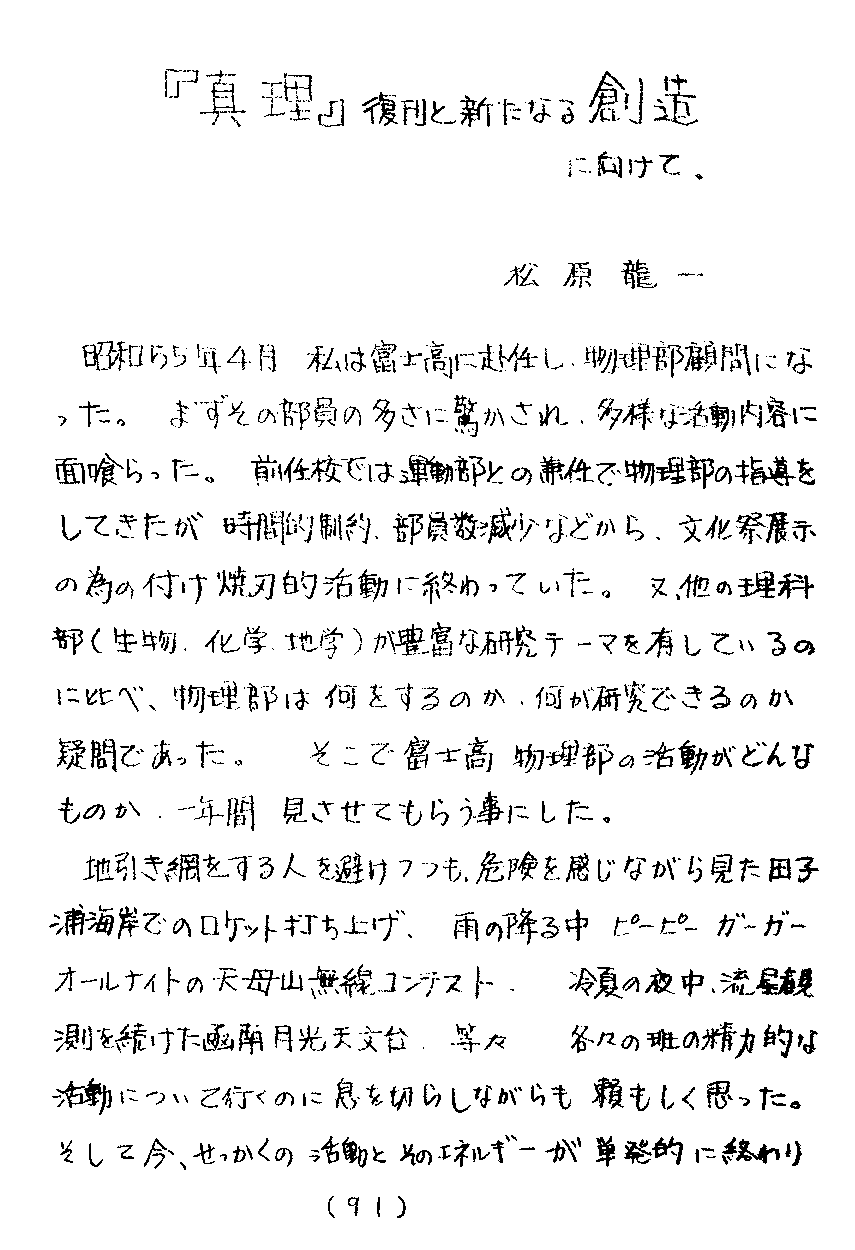 『真理』復刊と新たなる創造
に向けて、
松原龍一
昭和55年4月 私は富士高に赴任し、物理部顧問にな
った。 まずその部員の多さに驚かされ、多様な活動内容に
面喰らった。 前任校では運動部との兼任で物理部の指導を
してきたが 時間的制約、部員数減少などから、文化祭展示
の為の付け焼刃的活動に終わっていた。 又、他の理科
部(生物、化学、地学)が豊富な研究テーマを有しているの
に比べ、物理部は何をするのか、何が研究できるのか
疑問であった。 そこで富士高 物理部の活動がどんな
ものか、一年間 見させてもらう事にした。
地引き網をする人を避けつつも、危険を感じながら見た田子
浦海岸でのロケット打ち上げ、 雨の降る中 ピーピー ガーガー
オールナイトの天母山無線コンテスト、 冷夏の夜中、流星観
測を続けた函南月光天文台、等々 各々の班の精力的な
活動について行くのに息を切らしながらも 頼もしく思った。
そして今、せっかくの 活動とそのエネルギーが 単発的に終わり
(91)